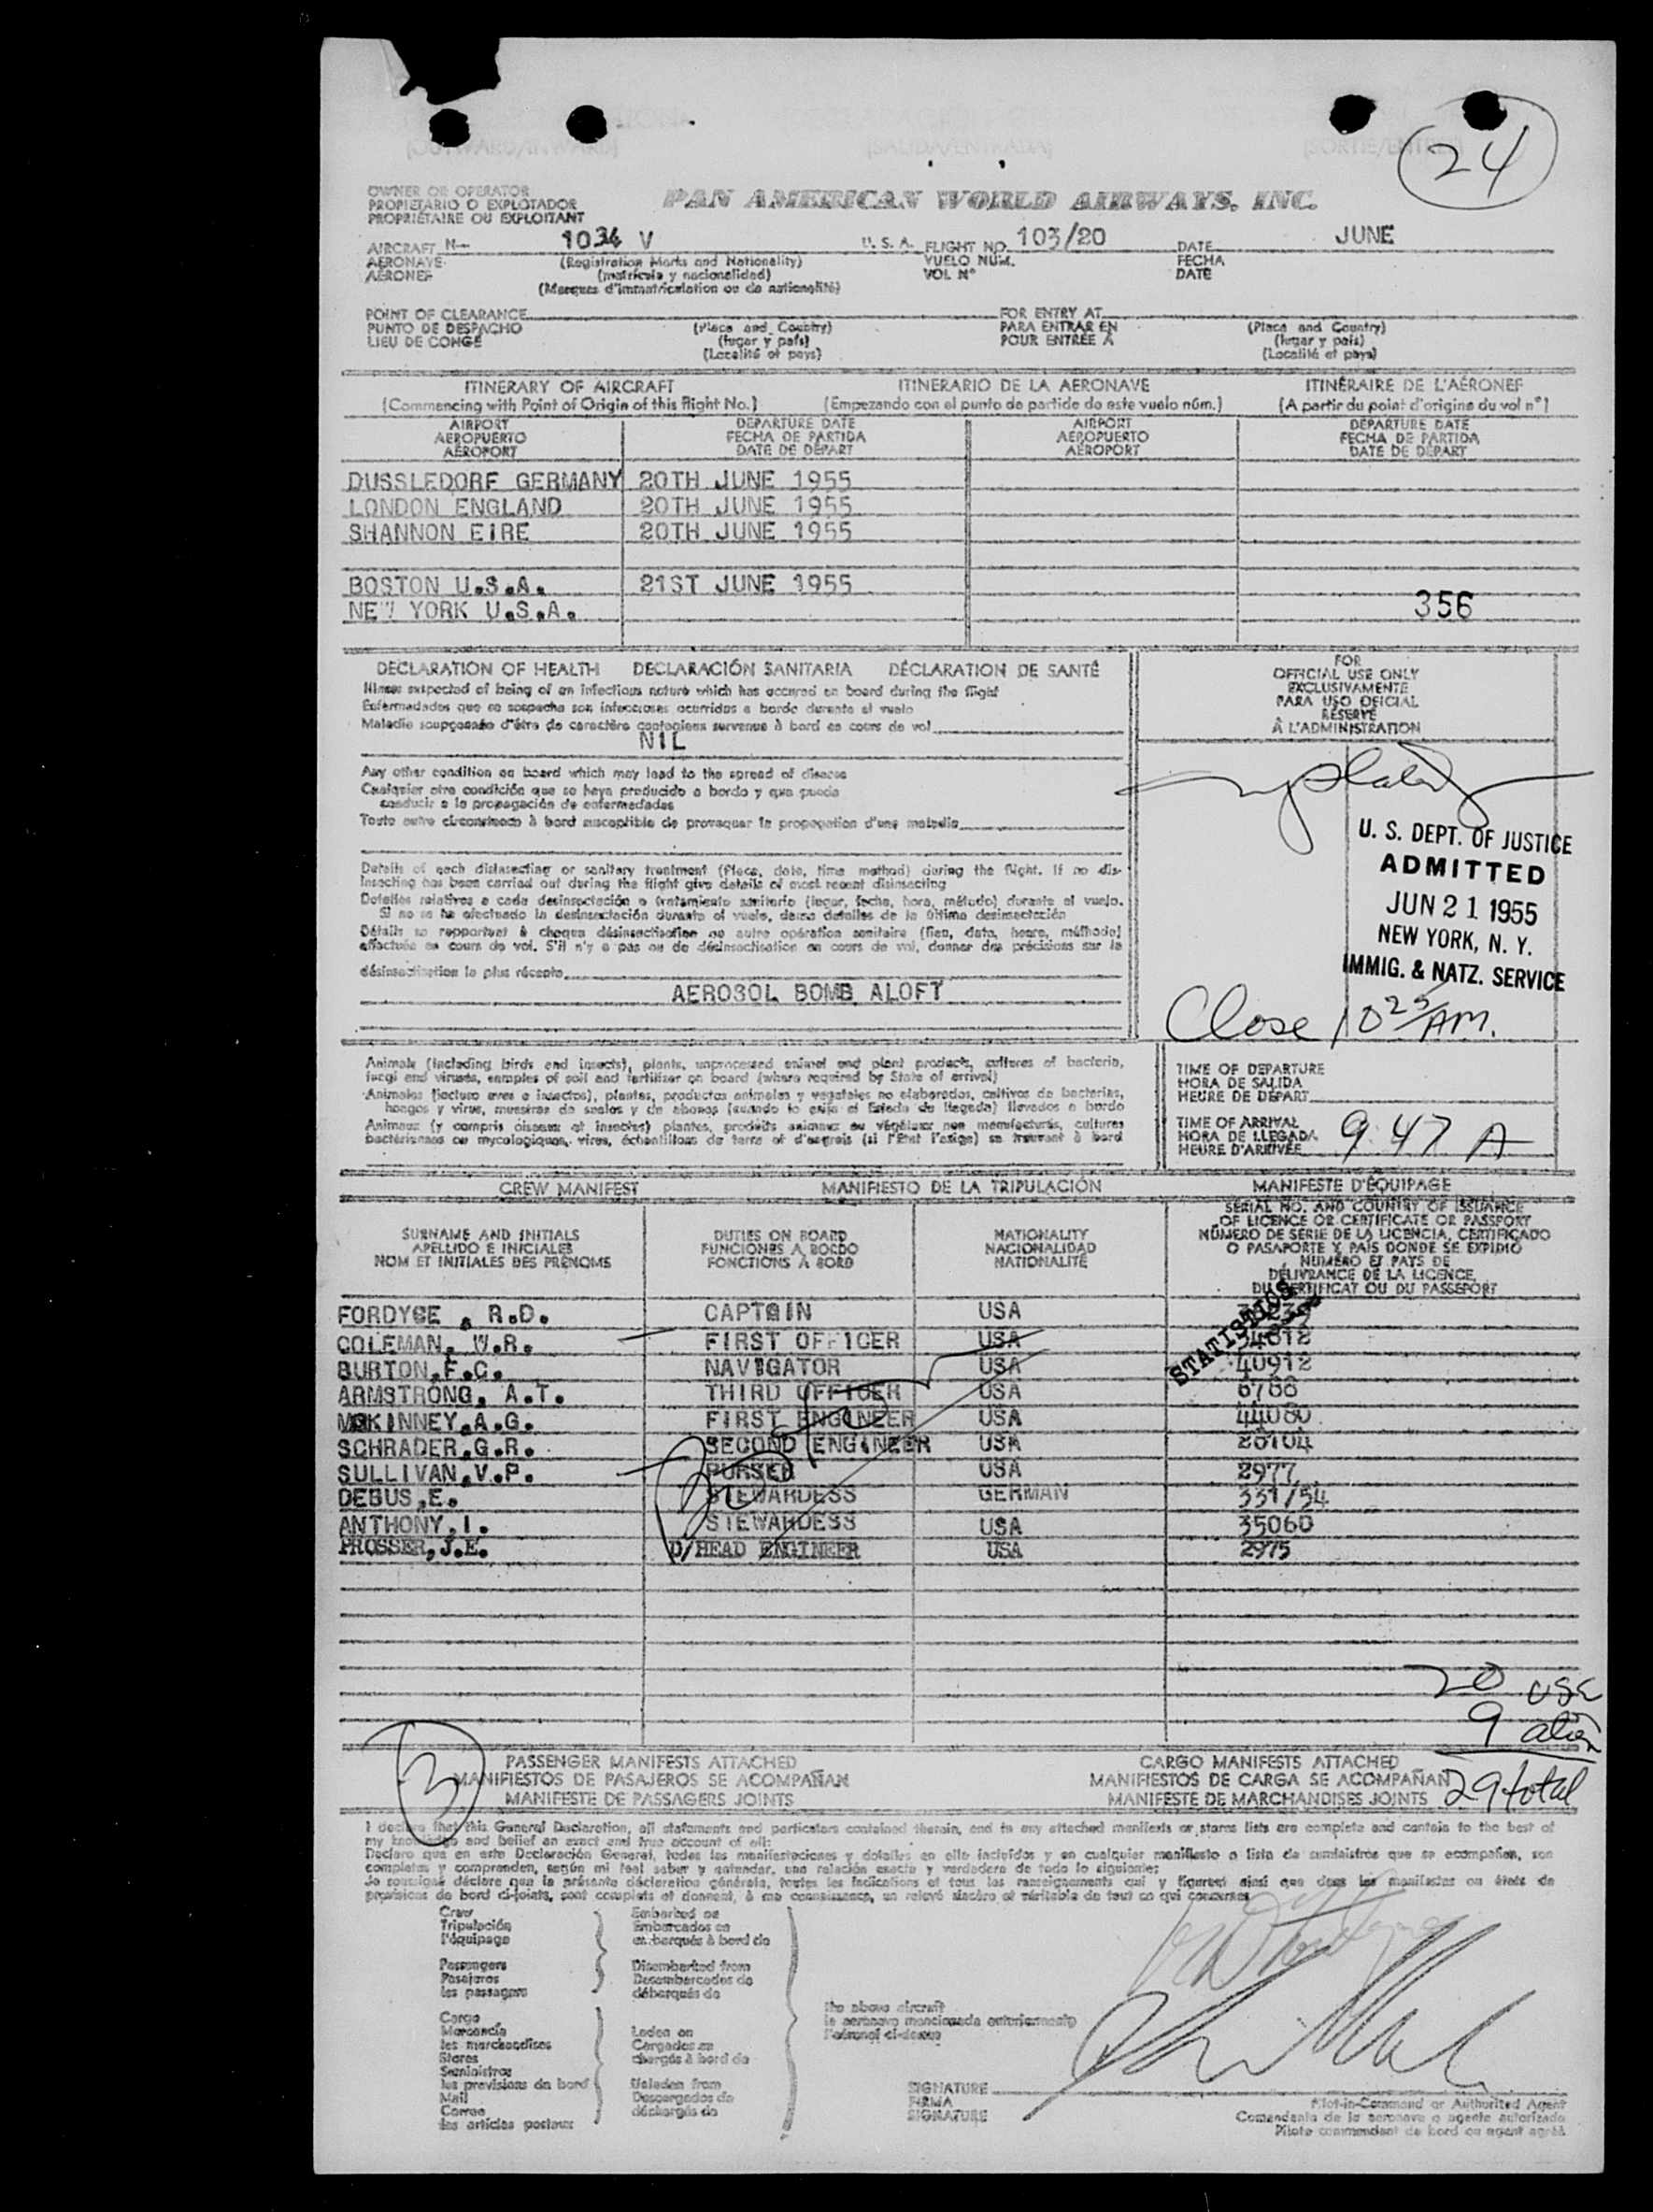 24
OWNER OR OPERATOR
PROPIETARIO O EXPLOTADOR
PROPRIÉTAIRE OU EXPLOITANT
PAN AMERICAN WORLD AIRWAYS, INC.
AIRCRAFT N— 1034 V U. S. A. FLIGHT NO. 103/20 DATE JUNE
AERONAVE (Registration Marks and Nationality) VUELO NÚM. FECHA
AÉRONEF (matrícula y nacionalidad) VOL N° DATE
(Marques d'immatriculation ou de nationalité)
POINT OF CLEARANCE FOR ENTRY AT
PUNTO DE DESPACHO (Place and Country) PARA ENTRAR EN (Place and Country)
LIEU DE CONGÉ (lugar y país) POUR ENTRÉE À (lugar y país)
(Localité et pays) (Localité et pays)
ITINERARY OF AIRCRAFT ITINERARIO DE LA AERONAVE ITINÉRAIRE DE L'AÉRONEF
(Commencing with Point of Origin of this flight No.) (Empezando con el punto de partida de este vuelo núm.) (A partir du point d'origine du vol n°)
AIRPORT DEPARTURE DATE AIRPORT DEPARTURE DATE
AEROPUERTO FECHA DE PARTIDA AEROPUERTO FECHA DE PARTIDA
AÉROPORT DATE DE DÉPART AÉROPORT DATE DE DÉPART
DUSSLEDORF GERMANY 20TH JUNE 1955
LONDON ENGLAND 20TH JUNE 1955
SHANNON EIRE 20TH JUNE 1955
BOSTON U.S.A. 21ST JUNE 1955
NEW YORK U.S.A. 356
DECLARATION OF HEALTH DECLARACIÓN SANITARIA DÉCLARATION DE SANTÉ
Illness suspected of being of an infectious nature which has occured on board during the flight
Enfermedades que se sospecha son infecciosas ocurridas a bordo durante el vuelo
Maladie soupçonnée d'être de caractère contagieux survenue à bord en cours de vol
NIL
Any other condition on board which may lead to the spread of disease
Cualquier otra condición que se haya producido a bordo y que pueda
conducir a la propagación de enfermedades
Toute autre circonstance à bord susceptible de provoquer la propagation d'une maladie
Details of each disinsecting or sanitary treatment (Place, date, time method) during the flight. If no dis-
insecting has been carried out during the flight give details of most recent disinsecting
Detalles relativos a cada desinsectación o tratamiento sanitario (lugar, fecha, hora, método) durante el vuelo.
Si no se ha efectuado la desinsectación durante el vuelo, dense detalles de la última desinsectación
Détails se rapportant à chaque désinsectisation ou autre opération sanitaire (lieu, date, heure, méthode)
effectuée en cours de vol. S'il n'y a pas eu de désinsectisation en cours de vol, donner des précisions sur la
désinsectisation la plus récente
AEROSOL BOMB ALOFT
FOR
OFFICIAL USE ONLY
EXCLUSIVAMENTE
PARA USO OFICIAL
RÉSERVÉ
À L'ADMINISTRATION
U. S. DEPT. OF JUSTICE
ADMITTED
JUN 21 1955
NEW YORK, N. Y.
IMMIG. & NATZ. SERVICE
Close 10 25 AM.
Animals (including birds and insects), plants, unprocessed animal and plant products, cultures of bacteria,
fungi and viruses, samples of soil and fertilizer on board (where required by State of arrival)
Animales (incluso aves e insectos), plantas, productos animales y vegetales no elaborados, cultivos de bacterias,
hongos y virus, muestras de suelos y de abonos (cuando lo exija el Estado de llegada) llevados a bordo
Animaux (y compris oiseaux et insectes) plantes, produits animaux ou végétaux non manufacturés, cultures
bactériennes ou mycologiques, virus, échantillons de terre et d'engrais (si l'État l'exige) se trouvant à bord
TIME OF DEPARTURE
HORA DE SALIDA
HEURE DE DÉPART
TIME OF ARRIVAL
HORA DE LLEGADA 9 47 A
HEURE D'ARRIVÉE
CREW MANIFEST MANIFIESTO DE LA TRIPULACIÓN MANIFESTE D'ÉQUIPAGE
SURNAME AND INITIALS DUTIES ON BOARD NATIONALITY SERIAL NO. AND COUNTRY OF ISSUANCE
APELLIDO E INICIALES FUNCIONES A BORDO NACIONALIDAD OF LICENCE OR CERTIFICATE OR PASSPORT
NOM ET INITIALES DES PRÉNOMS FONCTIONS À BORD NATIONALITÉ NÚMERO DE SERIE DE LA LICENCIA, CERTIFICADO
O PASAPORTE Y PAÍS DONDE SE EXPIDIÓ
NUMÉRO ET PAYS DE
DÉLIVRANCE DE LA LICENCE
DU CERTIFICAT OU DU PASSEPORT
STATISTICS
FORDYCE , R.D. CAPTAIN USA
COLEMAN, W.R. FIRST OFFICER USA
BURTON,F.C. NAVIGATOR USA 40912
ARMSTRONG, A.T. THIRD OFFICER USA 6788
MCKINNEY,A.G. FIRST ENGINEER USA 44080
SCHRADER,G.R. SECOND ENGINEER USA
SULLIVAN,V.P. PURSER USA 2977
DEBUS,E. STEWARDESS GERMAN 331/54
ANTHONY,I. STEWARDESS USA 35060
PROSSER,J.E. D/HEAD ENGINEER USA 2975
20 USC
9 alien
29 total
3
PASSENGER MANIFESTS ATTACHED CARGO MANIFESTS ATTACHED
MANIFIESTOS DE PASAJEROS SE ACOMPAÑAN MANIFIESTOS DE CARGA SE ACOMPAÑAN
MANIFESTE DE PASSAGERS JOINTS MANIFESTE DE MARCHANDISES JOINTS
I declare that this General Declaration, all statements and particulars contained therein, and in any attached manifests or stores lists are complete and contain to the best of
my knowledge and belief an exact and true account of all:
Declaro que en este Declaración General, todas las manifestaciones y detalles en ella incluidos y en cualquier manifiesto o lista de suministros que se acompañen, son
completos y comprenden, según mi leal saber y entender, una relación exacta y verdadera de todo lo siguiente:
Je soussigné déclare que la présente déclaration générale, toutes les indications et tous les renseignements qui y figurent ainsi que dans les manifestes ou états de
provisions de bord ci-joints, sont complets et donnent, à ma connaissance, un relevé sincère et véritable de tout ce qui concerne
Crew Embarked on
Tripulación Embarcados en
l'équipage embarqués à bord de
Passengers Disembarked from
Pasajeros Desembarcados de
les passagers débarqués de
Cargo
Mercancía Laden on
les marchandises Cargados en
Stores chargés à bord de
Suministros
les provisions de bord Unladen from
Mail Descargados de
Correo déchargés de
les articles postaux
the above aircraft
la aeronave mencionada anteriormente
l'aéronef ci-dessus
SIGNATURE
FIRMA
SIGNATURE
Pilot-in-Command or Authorized Agent
Comandante de la aeronave o agente autorizado
Pilote commandant de bord ou agent agréé